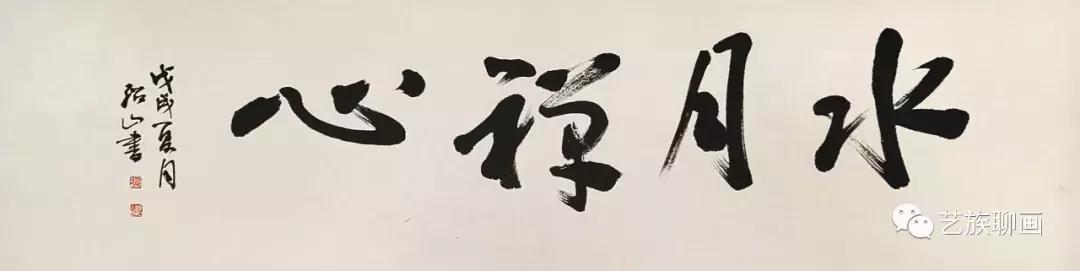 水月禅心
戊戌夏月
绍山书
艺族聊画